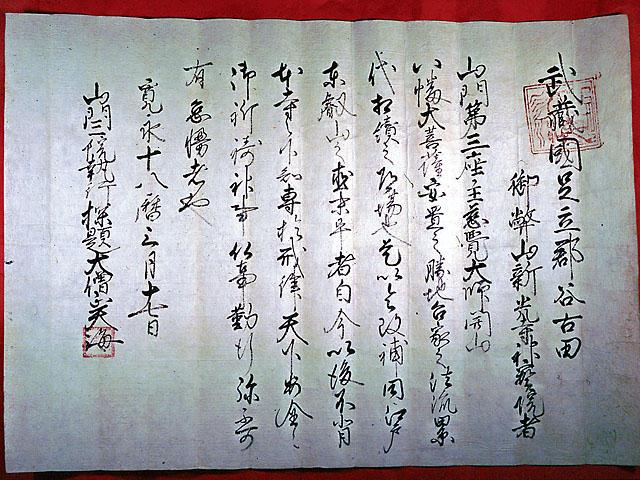 武蔵國足立郡谷古田
御幣山新光寺神藝院者
山門第三座主慈覚大師開山
八幡大菩薩安置之勝地台家之法流累
代相續之道場也是以令改補同江戸
東叡山之末寺早者自今以後不背
本寺之下知専権戒律天下安全之
御祈祷神事仏事勤行弥不可
有怠慢者也
寛永十八暦三月十七日
山門三院執行探題大僧正天海